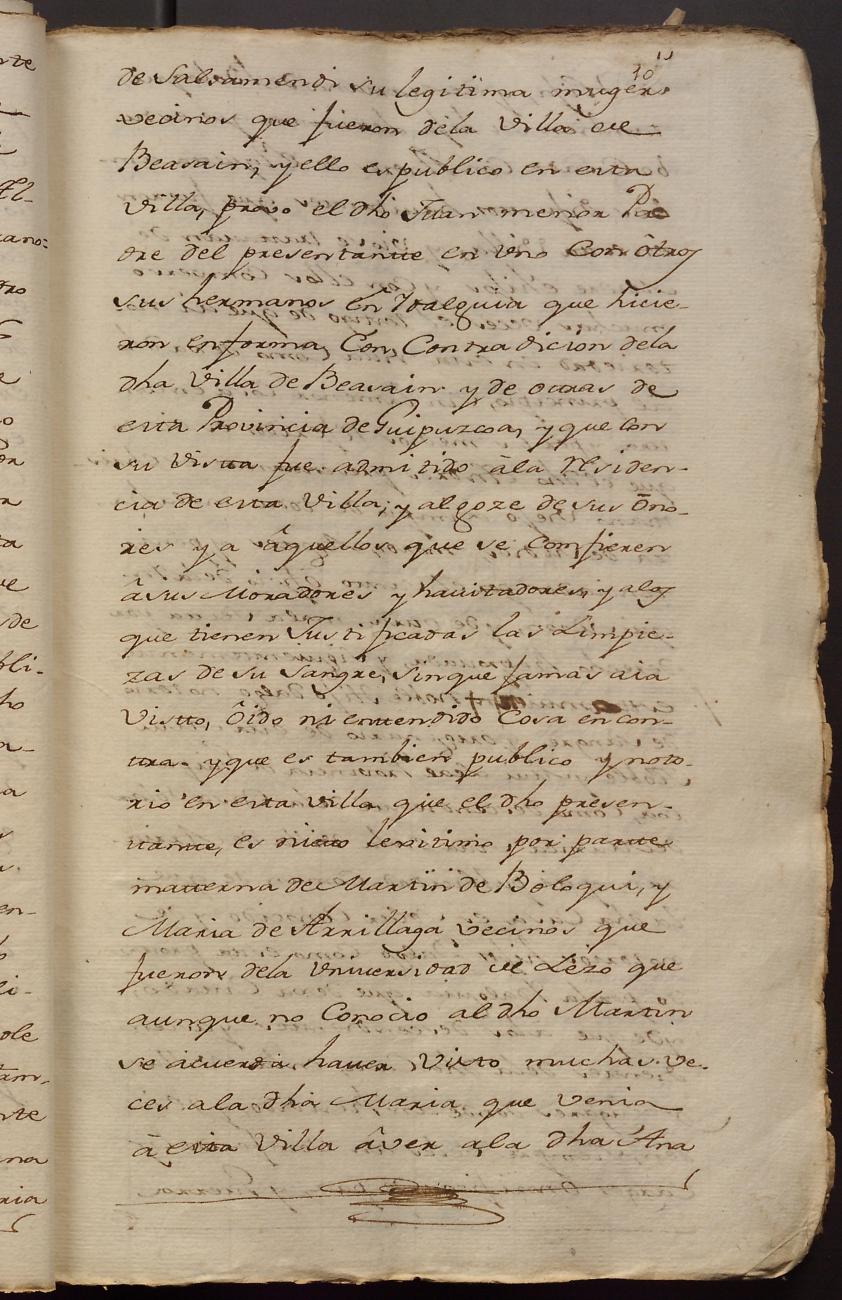 30
de Salsamendi su legitima muger
vecinos que fueron dela Villa de
Beasain, y ello es publico en esta
Villa, provo el dho Juan menor Pa
dre del presentante en Vno Con ôtros
sus hermanos en Ydalguia que hicie-
ron, en forma, Con, Contradicion dela
dha Villa de Beasain y de otras de
esta Provincia de Guipuzcoa, y que con
su Vista fue admitido âla Residen-
cia de esta Villa, y al goze de sus Ôno-
res y a âquellos que se Confieren
âsus Moradores y havitadores, y alos
que tienen Justificadas las Limpie-
zas de su Sangre, sin que Jamas aia
Vistto, Ôido ni entendido Cosa en con-
ttra. y que es tambien publico y noto-
rio en esta Villa que el dho presen-
ttante, es nieto lexitimo por partte
matterna de Martin de Boloqui, y
Maria de Arrillaga vecinos que
fueron dela Vniversidad de Lezo que
aunque no Conocio al dho Martin
se acuerda haver Visto muchas ve-
ces ala dha Maria que venia
â esta Villa âver ala dha Ana